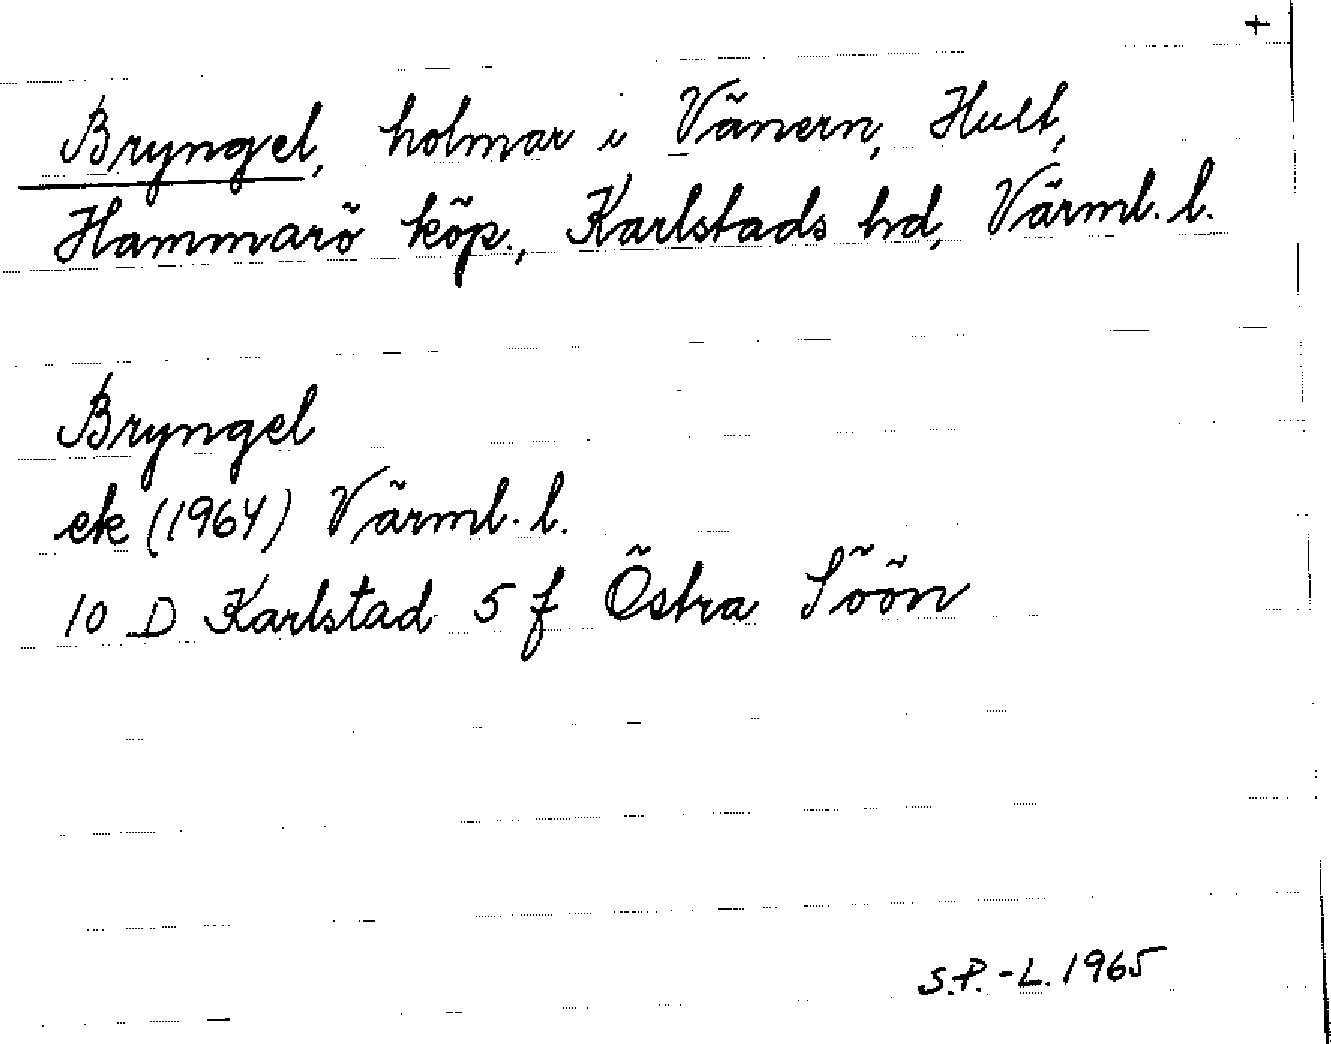 +
Bryngel, holmar i Vänern, Hult,
Hammarö köp., Karlstads hd, Värml. l.
Bryngel
ek (1964) Värml. l.
10 D Karlstad 5 f Östra Söön
S.P.-L. 1965